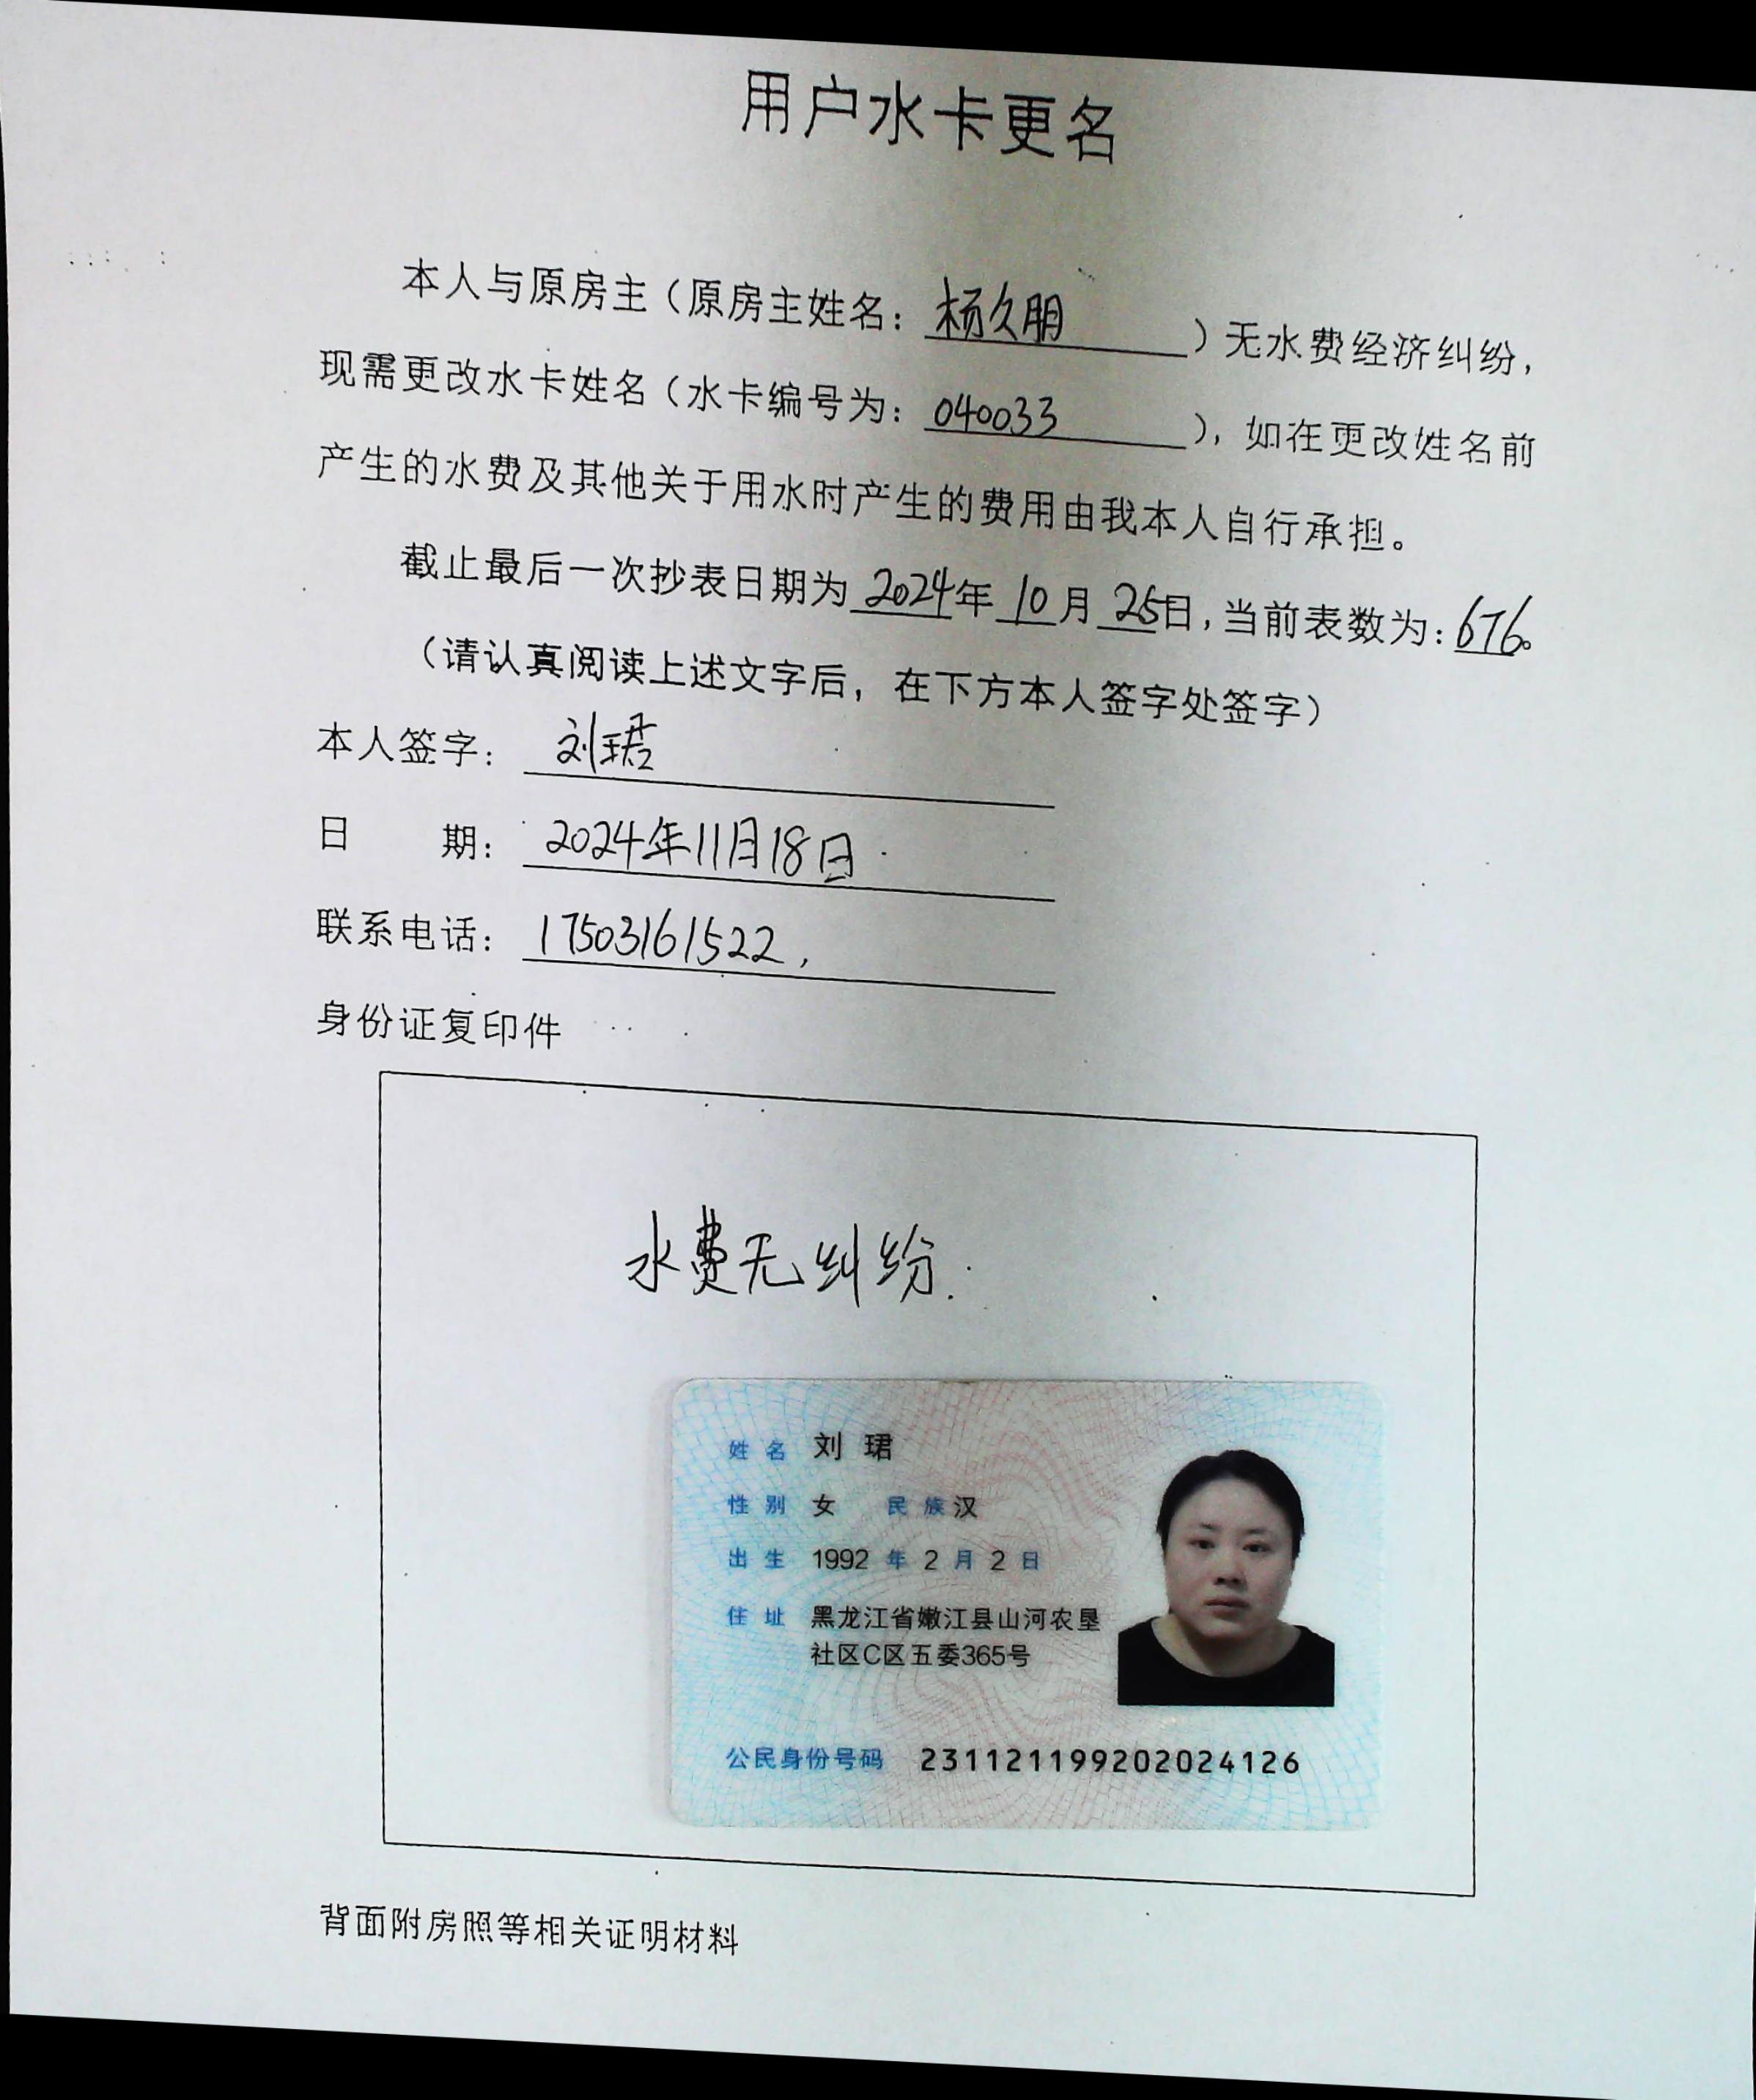 用户水卡更名
本人与原房主（原房主姓名：杨久朋）无水费经济纠纷，
现需更改水卡姓名（水卡编号为：040033），如在更改姓名前
产生的水费及其他关于用水时产生的费用由我本人自行承担。
截止最后一次抄表日期为2024年10月25日，当前表数为：676。
（请认真阅读上述文字后，在下方本人签字处签字）
本人签字：刘珺
日　期：2024年11月18日
联系电话：17503161522，
身份证复印件
水费无纠纷.
姓名 刘珺
性别 女 民族 汉
出生 1992年2月2日
住址 黑龙江省嫩江县山河农垦
社区C区五委365号
公民身份号码 231121199202024126
背面附房照等相关证明材料